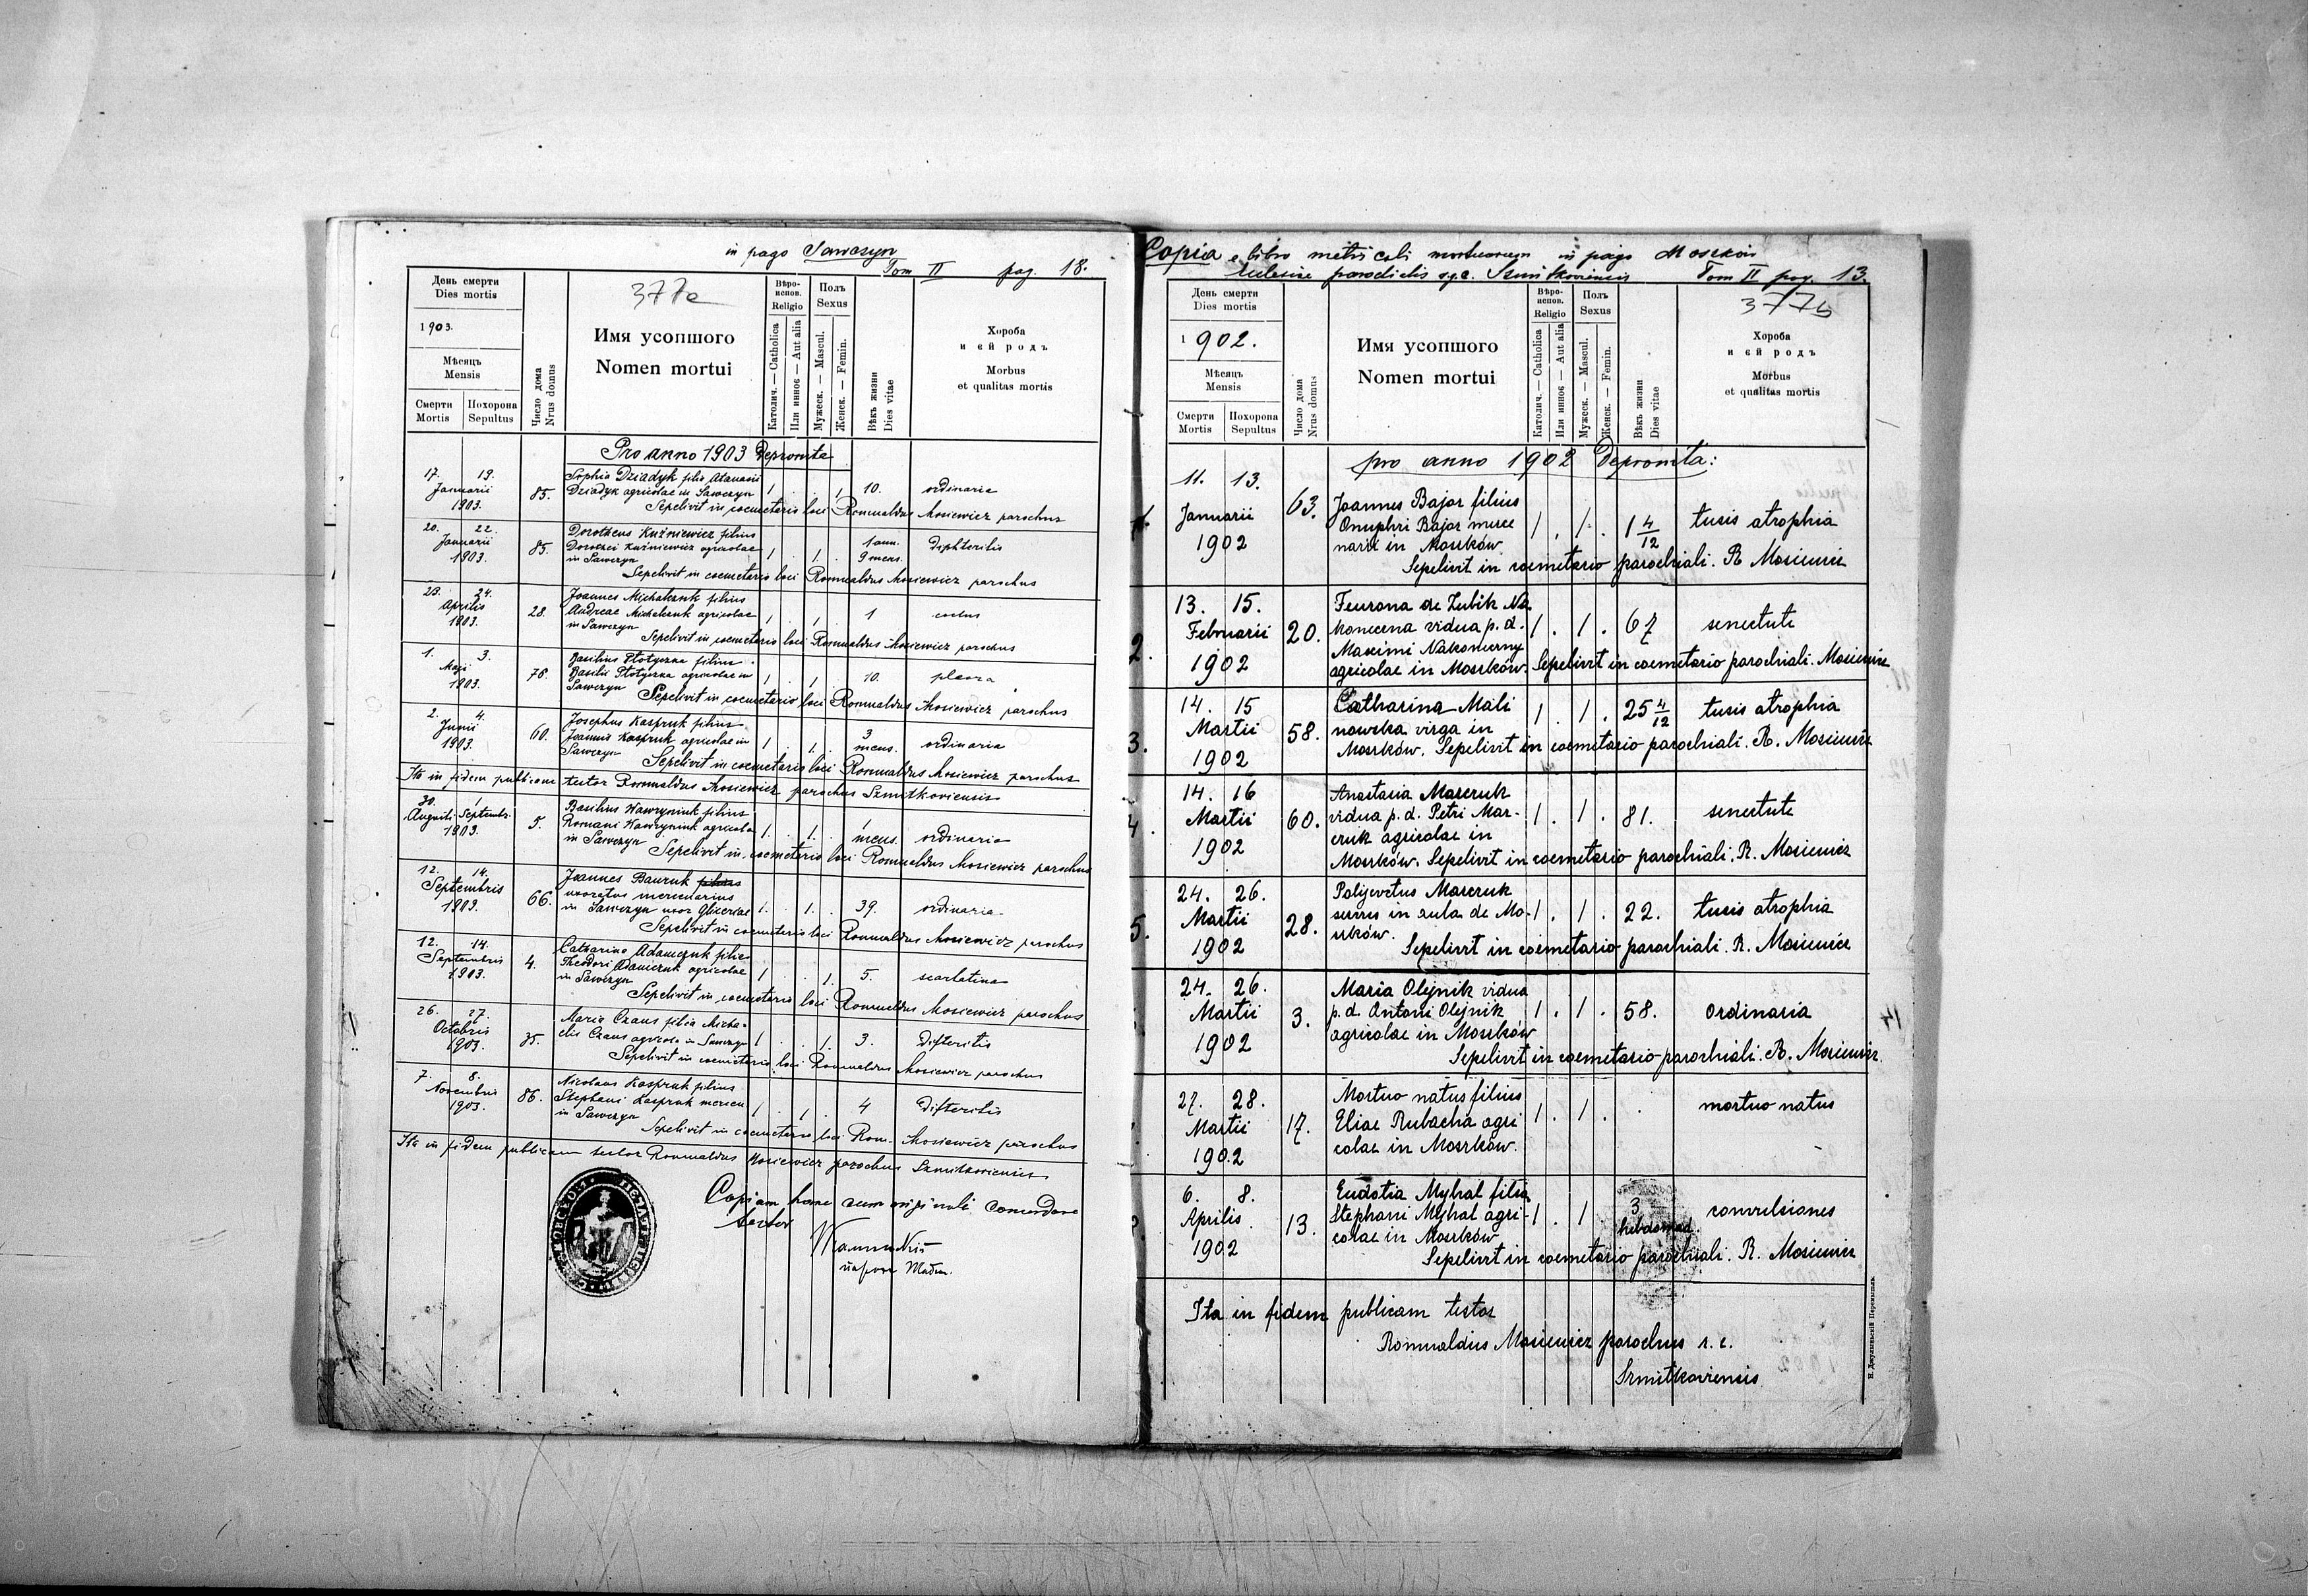 in pago Sawczyn
Tom II pag. 18.
День смерти
Dies mortis
1903.
Мѣсяць
Mensis
Смерти
Mortis
Похорона
Sepultus
Число дома
Nrus domus
377a
Имя усопшого
Nomen mortui
Вѣро-
испов.
Religio
Католич. — Catholica
Или инное — Aut alia
Полъ
Sexus
Мужеск. — Mascul.
Женск. — Femin.
Вѣкъ жизни
Dies vitae
Хороба
и ей родъ
Morbus
et qualitas mortis
Pro anno 1903 Depromta
17. 19.
Januarii
1903.
85.
Sophia Dziadyk filia Atanasii
Dziadyk agricolae in Sawczyn
1 . . 1 10. ordinaria
Sepelivit in coemeterio loci Romualdus Mosiewicz parochus
20. 22.
Januarii
1903.
85.
Dorotheus Kuźniewicz filius
Dorothei Kuźniewicz agricolae
in Sawczyn
1 . 1 . 1 ann.
9 mens.
Diphteritis
Sepelivit in coemeterio loci Romualdus Mosiewicz parochus
23. 24.
Aprilis
1903.
28.
Joannes Michalczuk filius
Andreae Michalczuk agricolae
in Sawczyn
1 . 1 . 1
Sepelivit in coemeterio loci Romualdus Mosiewicz parochus
1. 3.
Maji
1903.
76.
Basilius Płotyczka filius
Basilii Płotyczka agricolae in
Sawczyn
1 . 1 . 10.
Sepelivit in coemeterio loci Romualdus Mosiewicz parochus
2. 4.
Junii
1903.
60.
Josephus Kaspruk filius
Joannis Kaspruk agricolae in
Sawczyn
1 . 1 . 3
mens. ordinaria
Sepelivit in coemeterio loci Romualdus Mosiewicz parochus
Ita in fidem publicam testor Romualdus Mosiewicz parochus Szmitkoviensis
30. 1
Augusti Septembr.
1903.
5.
Basilius Wawryniuk filius
Romani Wawryniuk agricolae
in Sawczyn
1. . 1. 1
mens. ordinaria
Sepelivit in coemeterio loci Romualdus Mosiewicz parochus
12. 14.
Septembris
1903.
66.
Joannes Bauruk filius
uxoratus mercenarius
in Sawczyn uxor Gliceriae
1. . 1. . 39. ordinaria
Sepelivit in coemeterio loci Romualdus Mosiewicz parochus
12. 14.
Septembris
1903.
4.
Catharina Adamczuk filia
Theodori Adamczuk agricolae
in Sawczyn
1 . . 1. 5. scarlatina
Sepelivit in coemeterio loci Romualdus Mosiewicz parochus
26. 27.
Octobris
1903.
35.
Maria Czaus filia Micha-
elis Czaus agricola in Sawczyn
1 . . 1. 3. difteritis
Sepelivit in coemeterio loci Romualdus Mosiewicz parochus
7. 8.
Novembris
1903.
86.
Nicolaus Kaspruk filius
Stephani Kaspruk mercen.
in Sawczyn
1 . 1 . 4 difteritis
Sepelivit in coemeterio loci Rom. Mosiewicz parochus
Ita in fidem publicam testor Romualdus Mosiewicz parochus Szmitkoviensis
Copiam hanc cum originali concordare
testor
Copia e libro metricali mortuorum in pago Moszków
Eclesiae parochialis r.g.c. Szmitkoviensis Tom II pag. 13.
День смерти
Dies mortis
1902.
Мѣсяць
Mensis
Смерти
Mortis
Похорона
Sepultus
Число дома
Nrus domus
Имя усопшого
Nomen mortui
Вѣро-
испов.
Religio
Католич. — Catholica
Или инное — Aut alia
Полъ
Sexus
Мужеск. — Mascul.
Женск. — Femin.
Вѣкъ жизни
Dies vitae
377b
Хороба
и ей родъ
Morbus
et qualitas mortis
pro anno 1902 Depromta:
1.
11. 13.
Januarii
1902
63.
Joannes Bajor filius
Onuphri Bajor merce
narii in Moszków
1 . 1 . 1 4/12 tusis atrophia
Sepelivit in coemetario parochiali. R Mosiewicz
2.
13. 15.
Februarii
1902
20.
Feurona de Zubik Na
koneczna vidua p. d.
Maximi Nakoneczny
agricolae in Moszków.
1 . 1 . 67 senectute
Sepelivit in coemetario parochiali. Mosiewicz
3.
14. 15
Martii
1902
58.
Catharina Mali
nowska virga in
Moszków.
1 . 1 . 25 4/12 tusis atrophia
Sepelivit in coemetario parochiali. R. Mosiewicz
4.
14. 16
Martii
1902
60.
Anastasia Marczuk
vidua p. d. Petri Mar-
czuk agricolae in
Moszków.
1 . 1 . 81. senectute
Sepelivit in coemetario parochiali. R. Mosiewicz
5.
24. 26.
Martii
1902
28.
Polyevctus Marczuk
servus in aula de Mo-
szków.
1 . 1 . 22. tusis atrophia
Sepelivit in coemetario parochiali. R. Mosiewicz
24. 26.
Martii
1902
3.
Maria Olejnik vidua
p. d. Antoni Olejnik
agricolae in Moszków
1 . 1 . 58. ordinaria
Sepelivit in coemetario parochiali. R. Mosiewicz.
27. 28.
Martii
1902
17.
Mortuo natus filius
Eliae Rubacha agri
colae in Moszków.
1 . 1 . . mortuo natus
6. 8.
Aprilis
1902
13.
Eudotia Myhal filia
Stephani Myhal agri-
colae in Moszków
1 . 1 3
hebdomad. convulsiones
Sepelivit in coemetario parochiali. R. Mosiewicz
Ita in fidem publicam testor
Romualdus Mosiewicz parochus r. c.
Szmitkoviensis
Н. Джулиньскій Перемышль